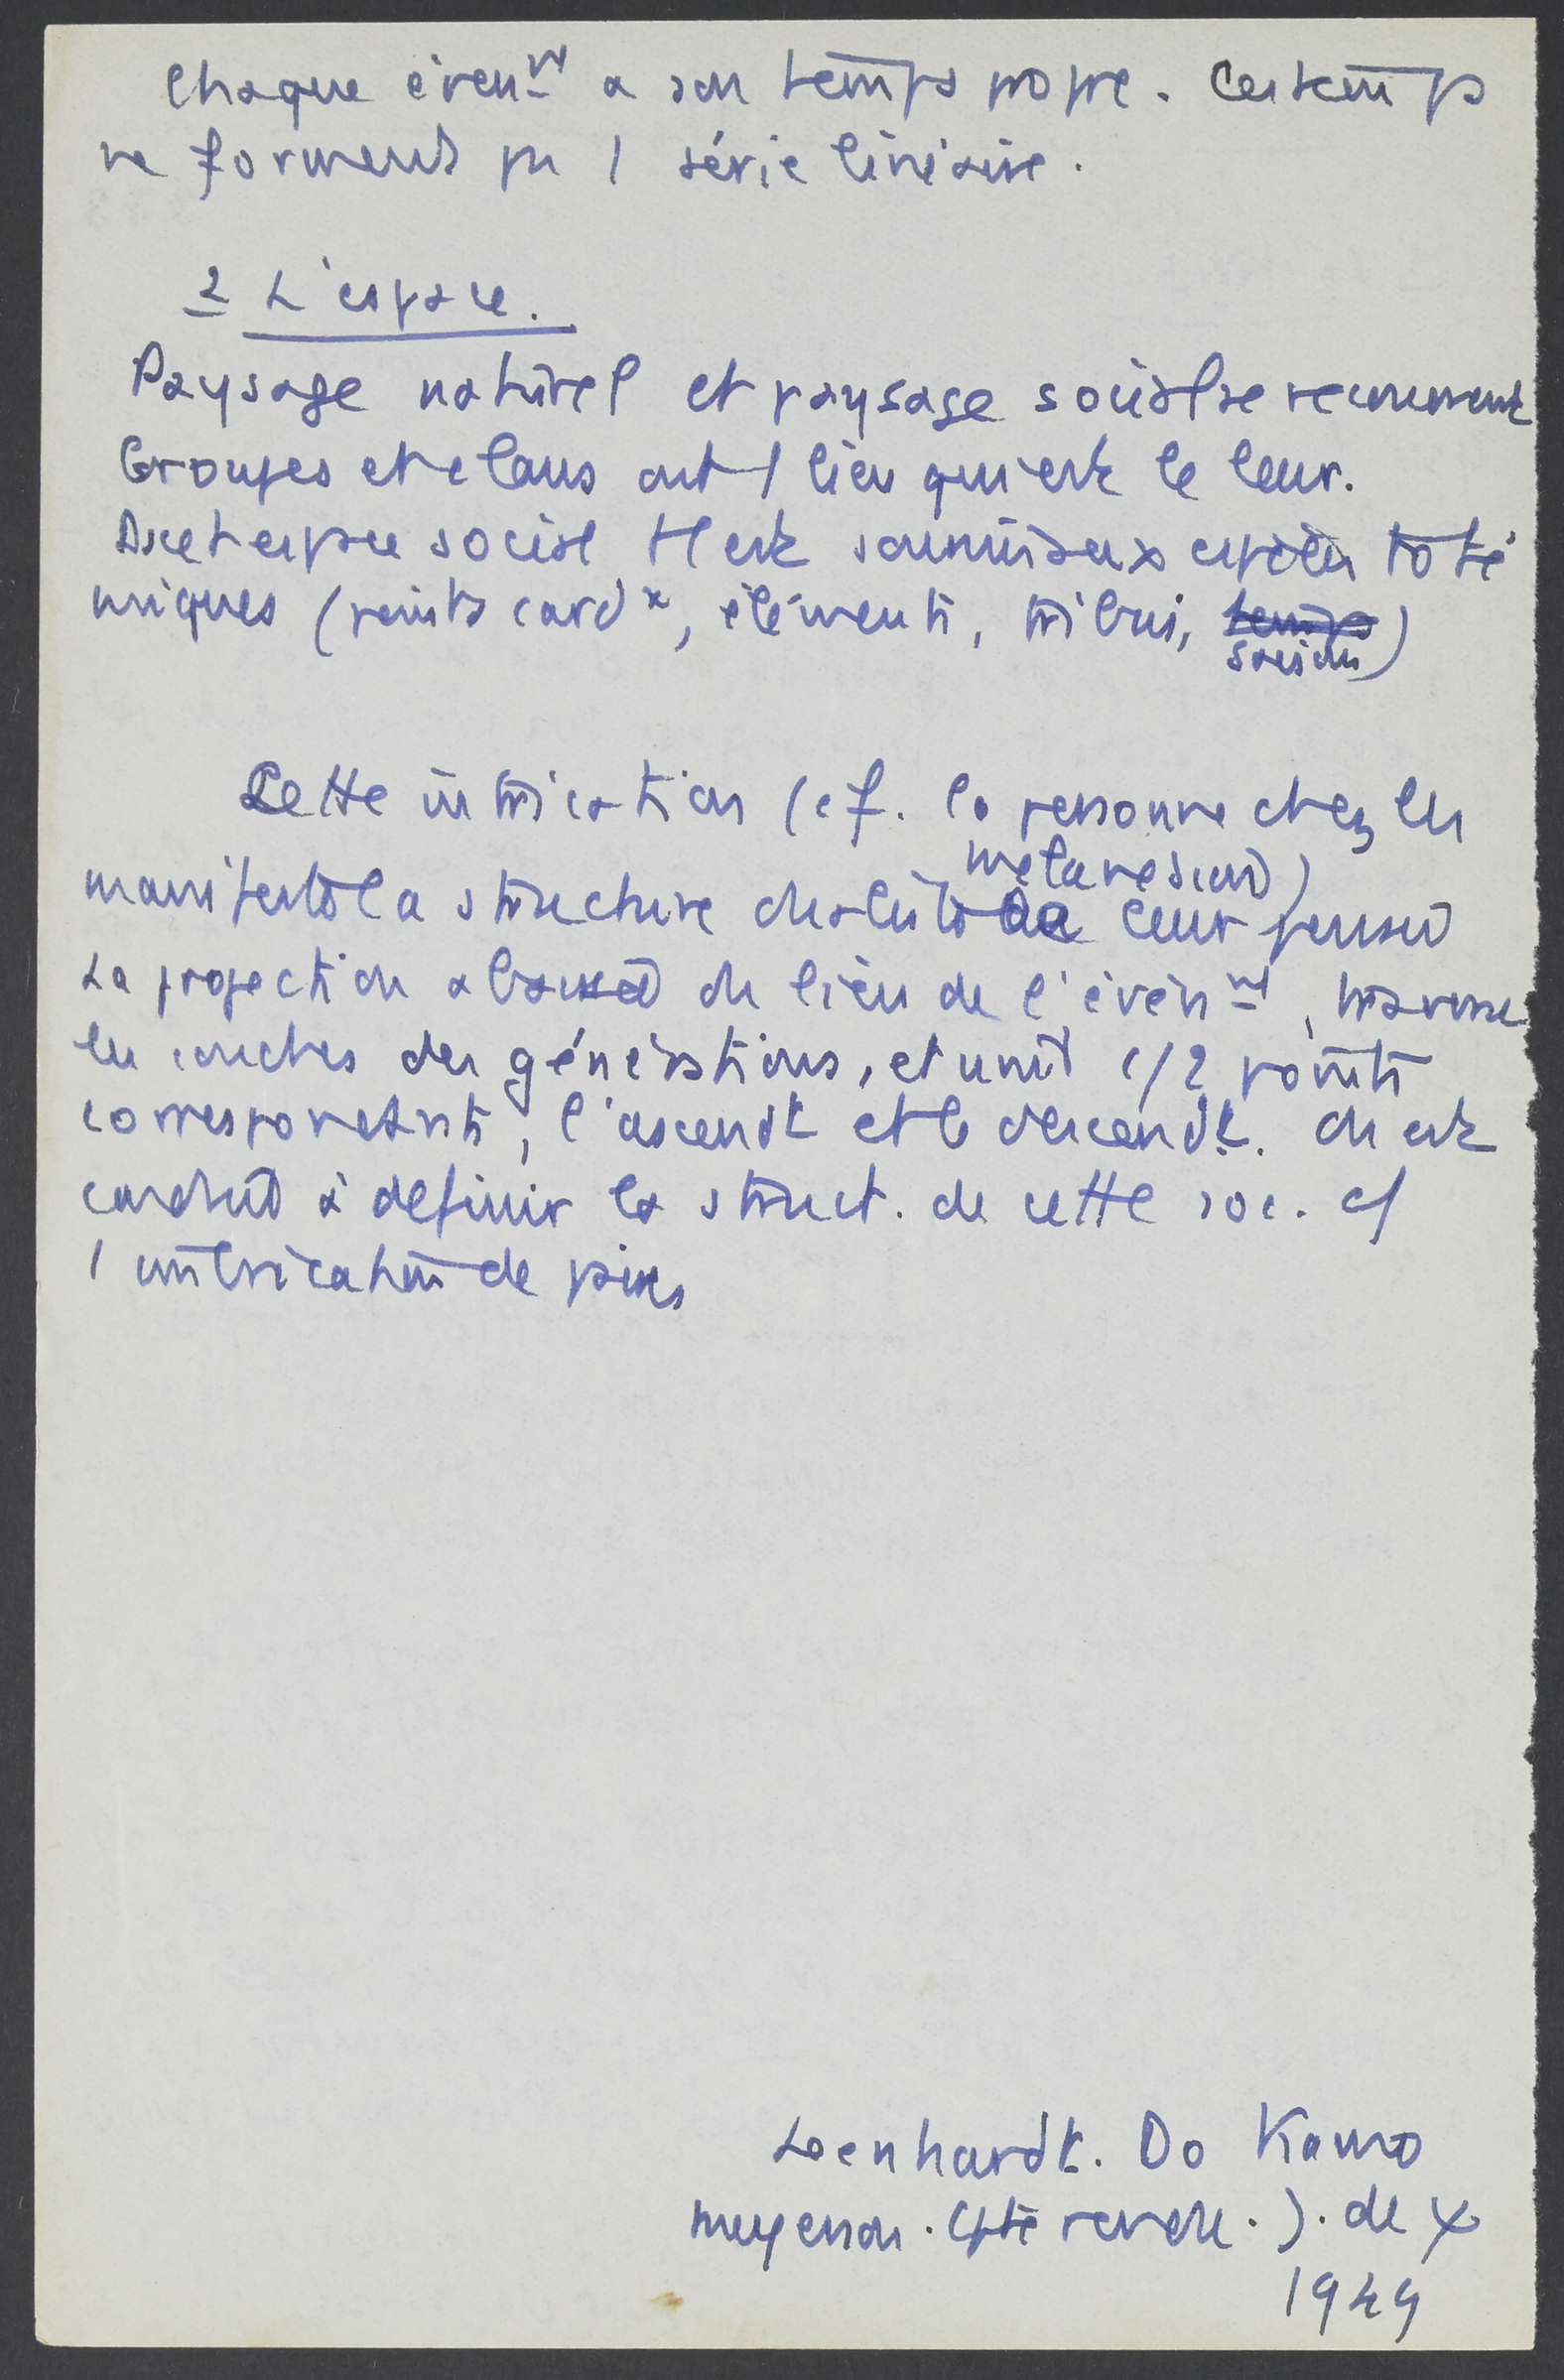 Chaque évenᵗ a son temps propre. Ces temps
ne forment pas 1 série linéaire.
2 L'espace.
Paysage naturel et paysage social se recouvrent
Groupes et clans ont 1 lieu qui est le leur.
et espace social est soumis aux cycles toté
miques (points cardˣ, éléments, tribus, temps
saisons)
Cette intrication (cf. la personne chez les
mélanésiens)
manifeste la structure dualiste de leur pensée
La projection du lieu de l'événᵗ, traverse
les couches des générations, et unit c/ 2 points
correspondants, l'ascendt et le descendt. On est
conduit à définir la struct. de cette soc. c/
1 imbrication de paires
Leenhardt. Do Kamo
Meyerson. Cpte rendu. J. de ψ
1949